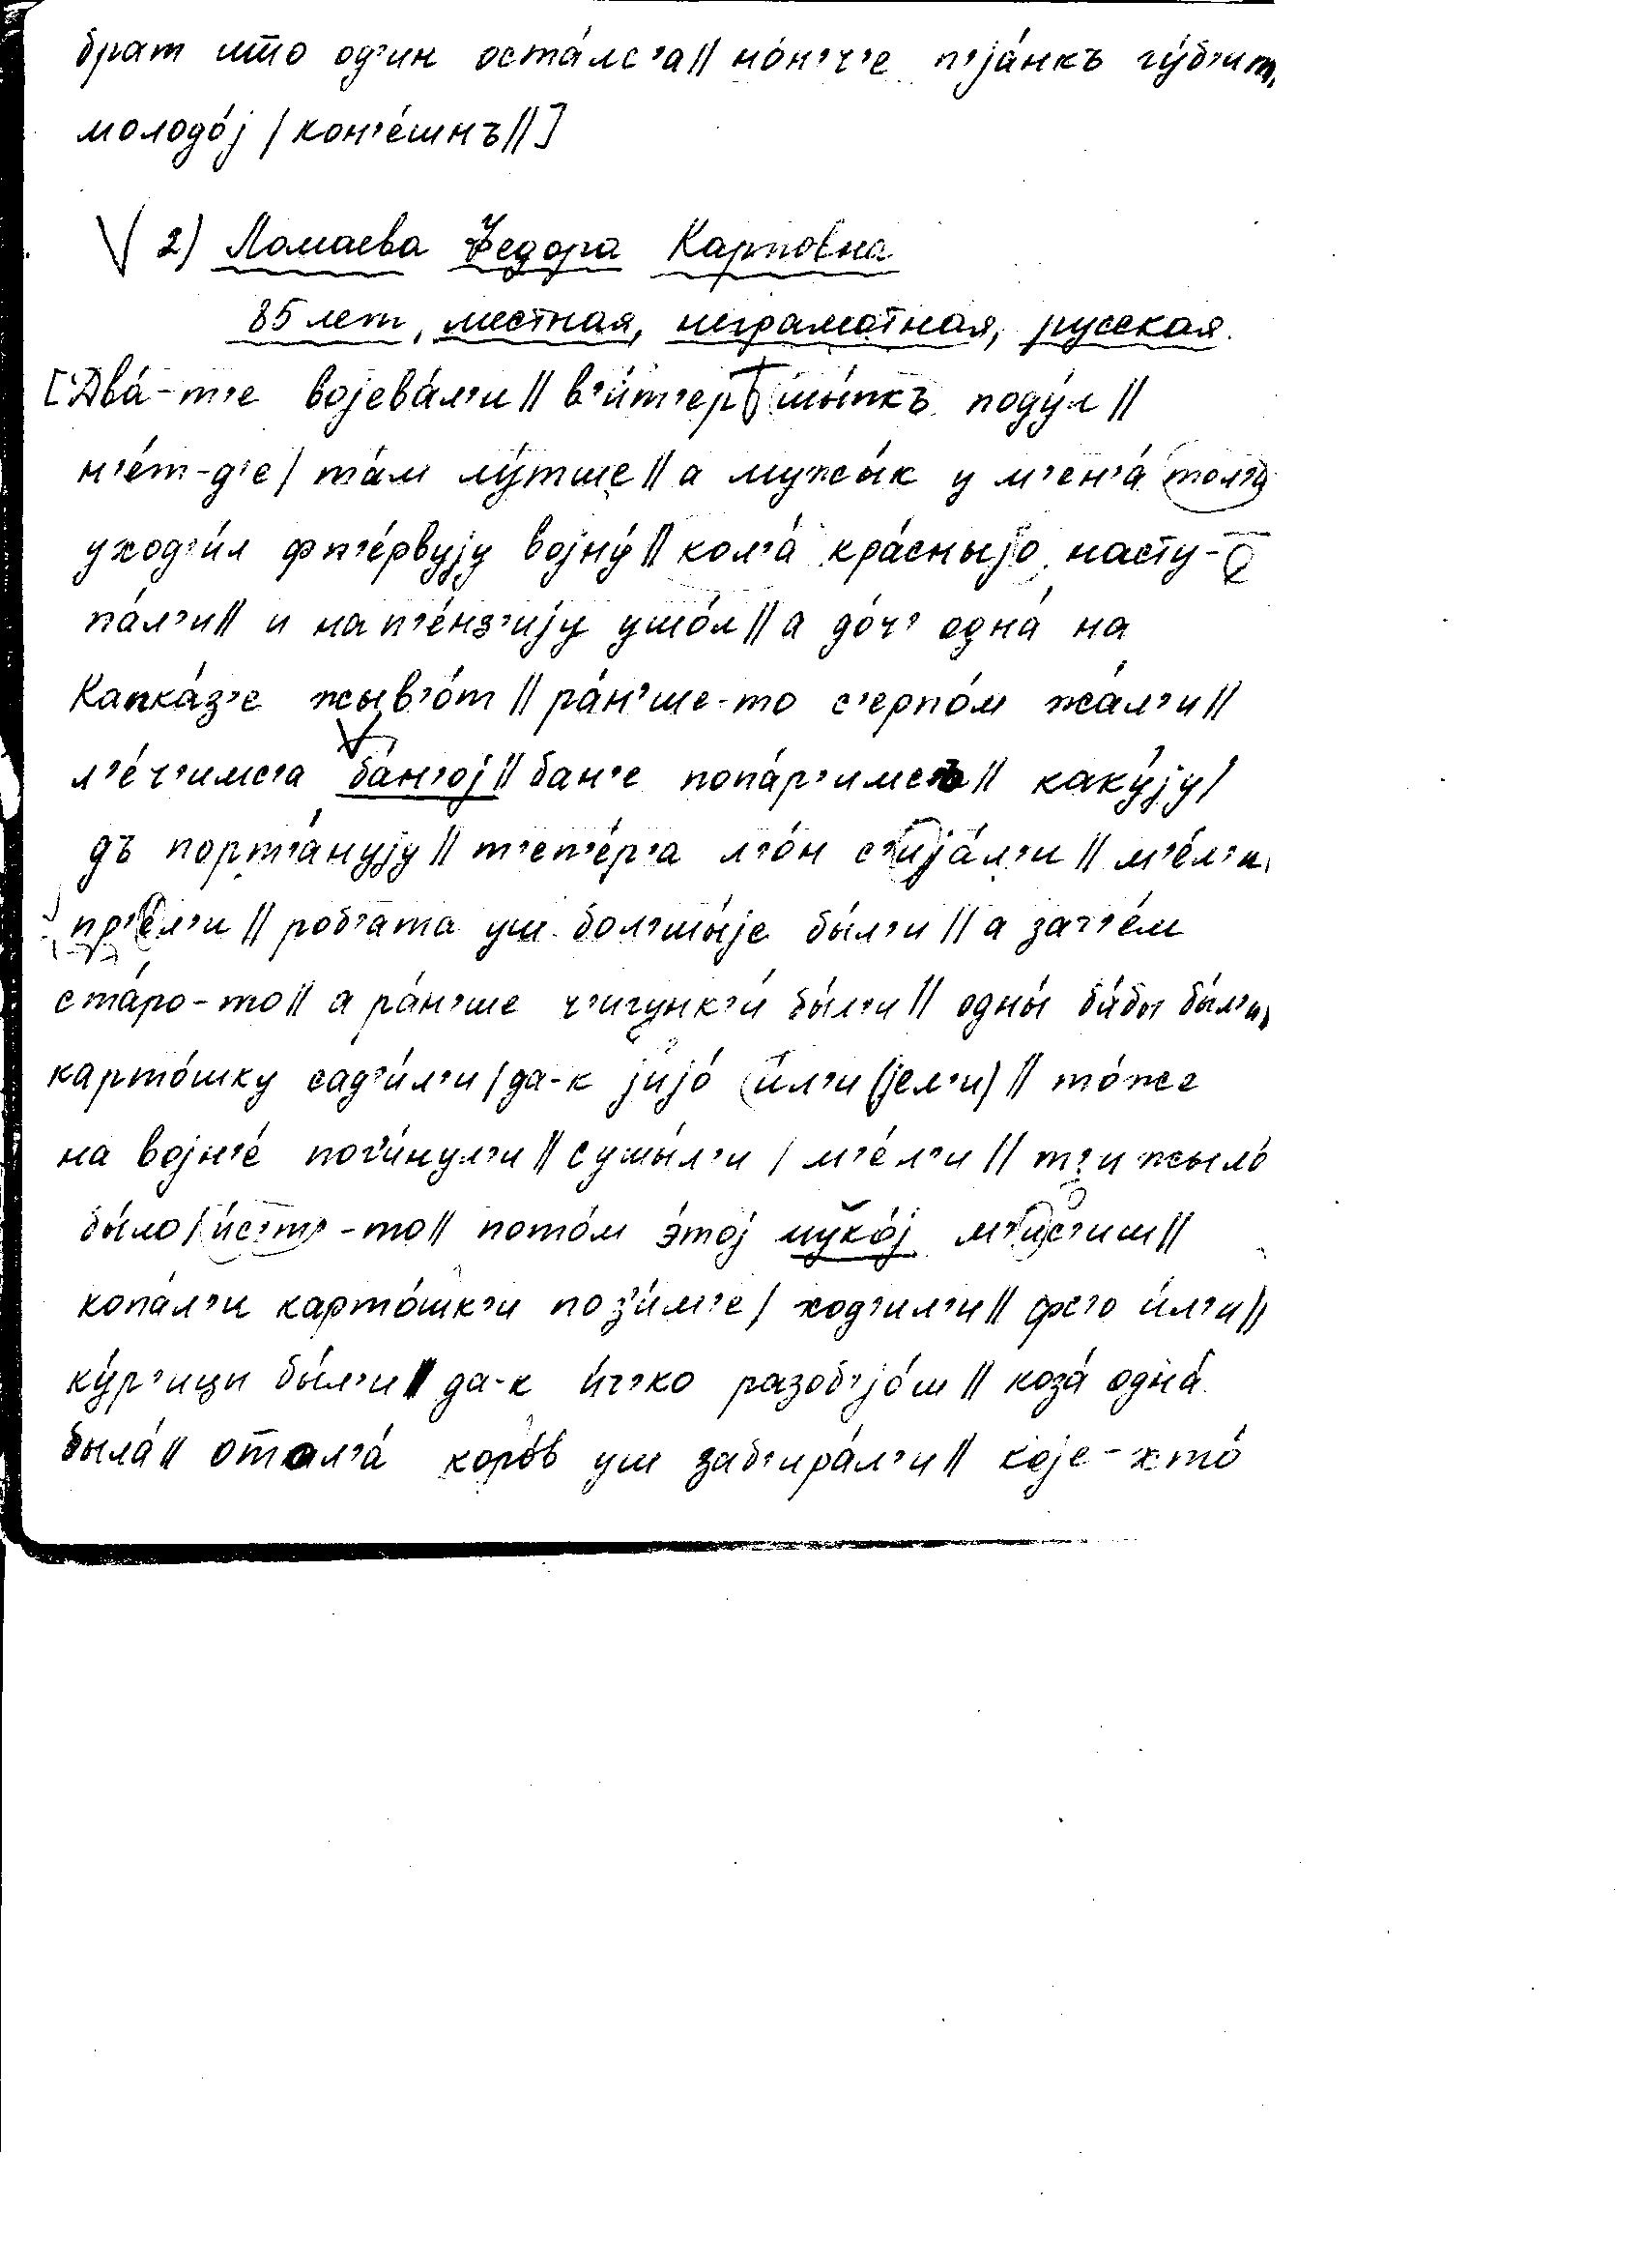 брат што од'ин оста́лс'а// но́н'ч'е п'jа́нкъ гу́б'ит,
молодо́j / кон'е́шнъ//]
2) Ломаева Федора Карповна
85 лет, местная, неграмотная, русская.
[Два́-т'е војева́л'и// в'и́т'ер шы́пкъ поду́л//
н'е́т-д'е/ та́м лу́тше// а мужы́к у м'ен'а́ тол'а
уход'и́л фп'е́рвуjу воjну́// кол'а́ кра́сныjо насту-
па́л'и// и на п'е́нз'иjу ушо́л// а до́ч' одна́ на
Капка́з'е жыв'о́т// ра́н'ше-то с'ерпо́м жа́л'и//
л'е́ч'имс'а ба́н'оj// бан'е попа́р'имсъ// каку́jу/
дъ порт'а́нуjу// т'еп'е́р'а л'о́н с'иjа́л'и// м'е́л'и,
пр'е́л'и// роб'ата уш бол'шы́jе бы́л'и// а зач'е́м
ста́ро-то// а ра́н'ше ч'игунк'и́ бы́л'и// одны́ ба́бы бы́л'и,
карто́шку сад'и́л'и/да-к jиjо́ и́л'и (jел'и)// то́же
на воjн'е́ пог'и́нул'и// сушы́л'и / м'е́л'и// т'ижыло́
бы́ло/и́с'т'-то// пото́м э́тоj муко́j м'и́с'иш//
копа́л'и карто́шк'и поз'и́м'е/ ход'ил'и// фс'о и́л'и//
ку́р'ицы бы́л'и// да-к и́ч'ко разоб'jо́ш// коза́ одна́
была́// отол'а́ коро́в уш заб'ира́л'и// коjе-хто́